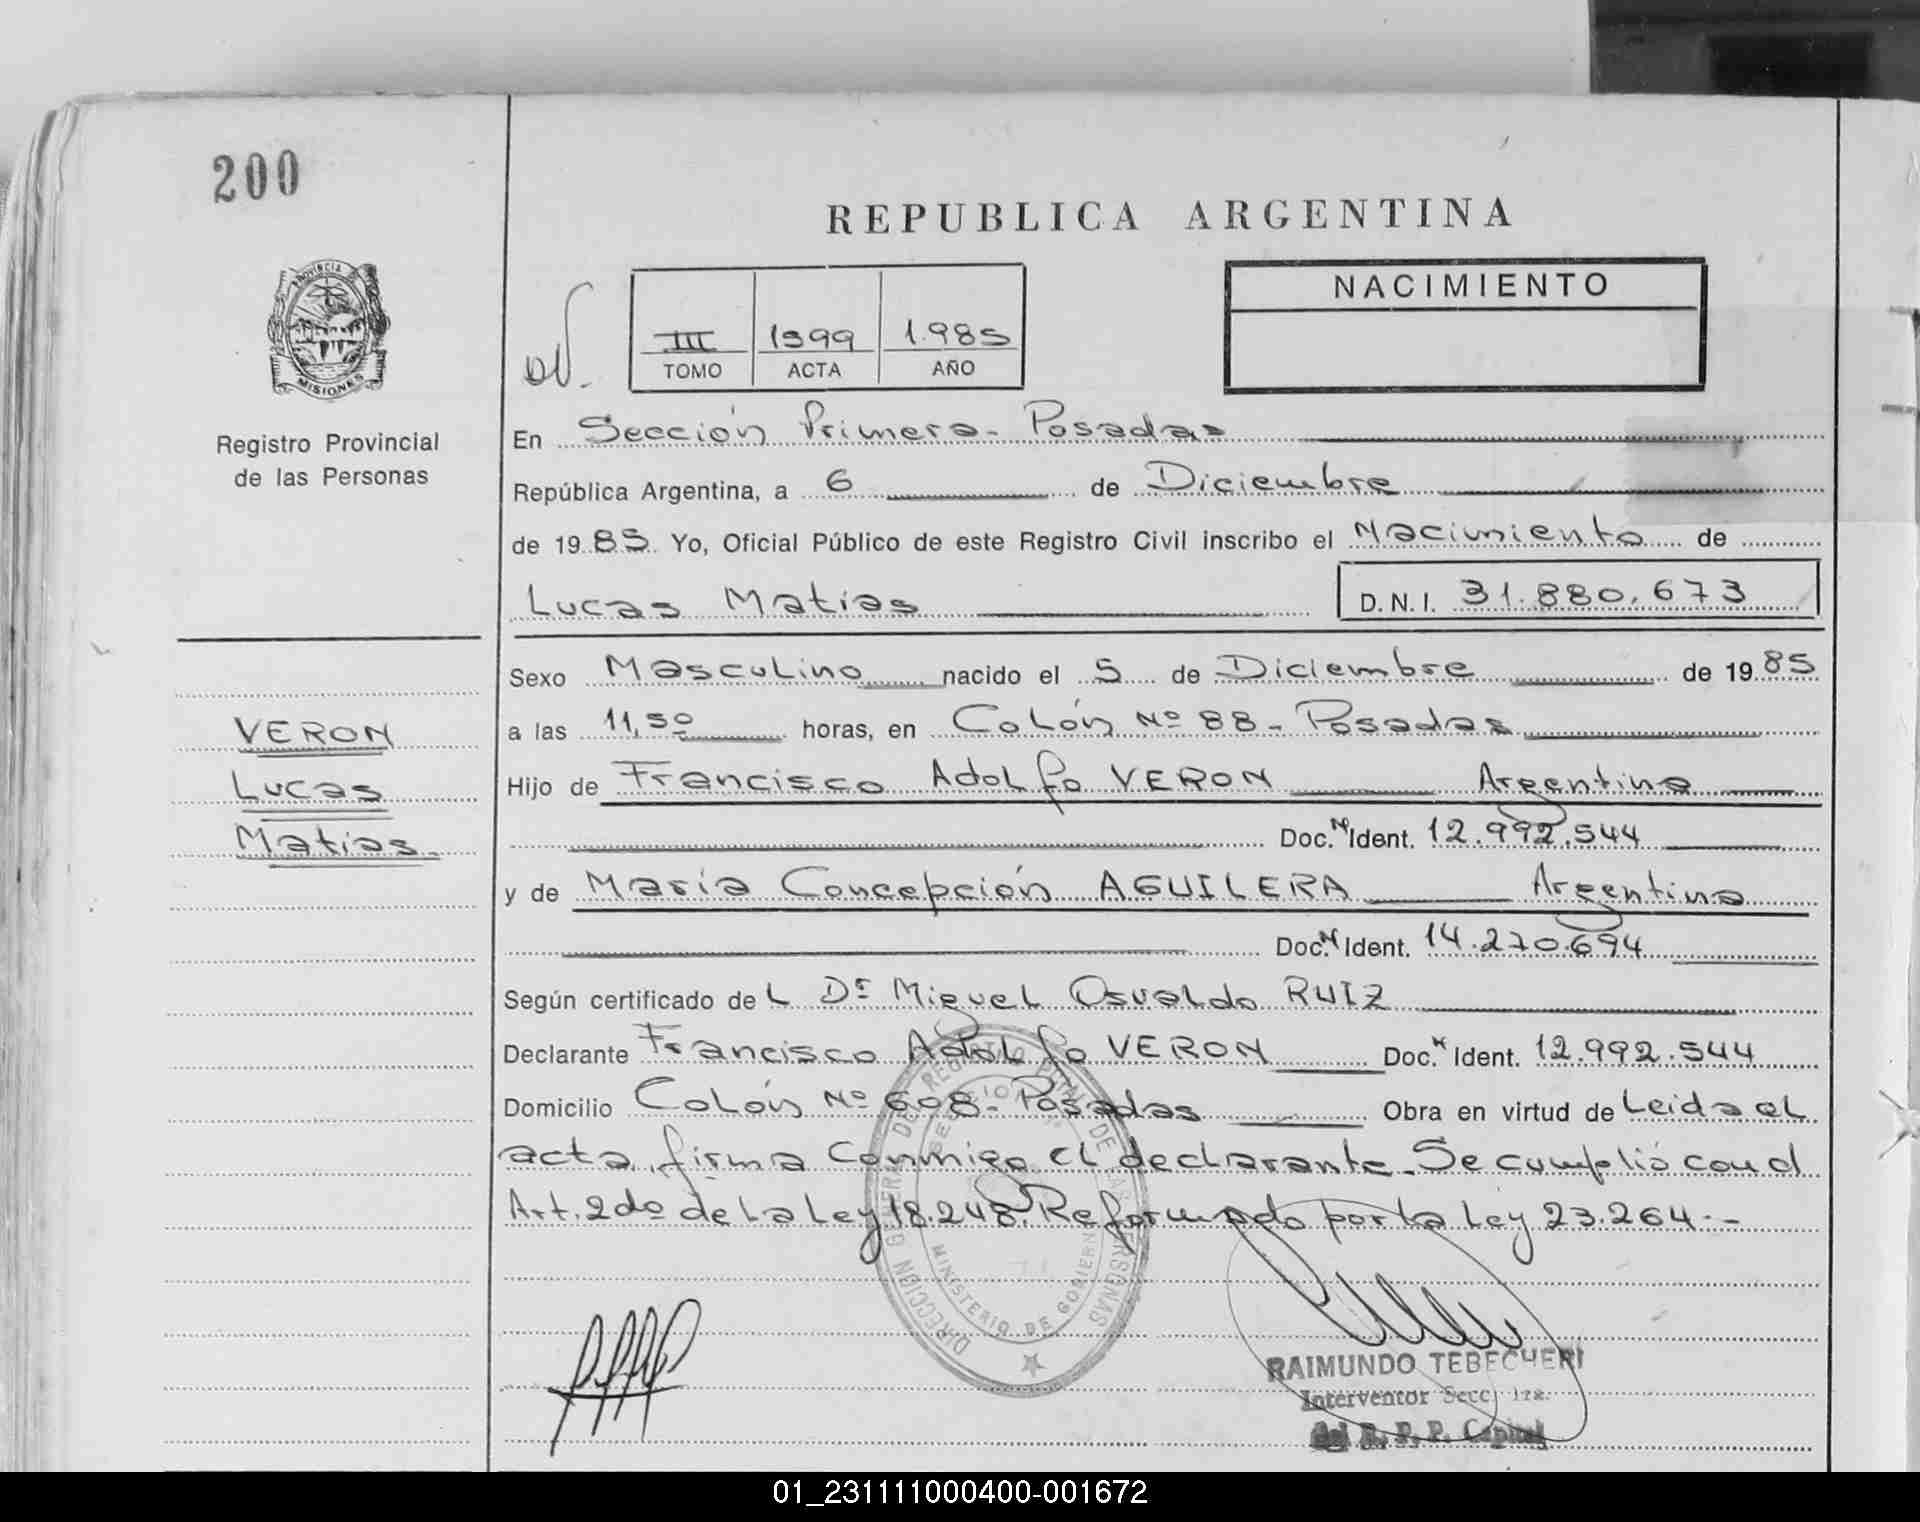 200
REPUBLICA ARGENTINA
PROVINCIA
MISIONES
Registro Provincial
de las Personas
III 1599 1.985
TOMO ACTA AÑO
NACIMIENTO
En Sección Primera - Posadas
República Argentina, a 6 de Diciembre
de 1985 Yo, Oficial Público de este Registro Civil inscribo el Nacimiento de
Lucas Matias D.N.I. 31.880.673
VERON
Lucas
Matias.
Sexo Masculino nacido el 5 de Diciembre de 1985
a las 11,50 horas, en Colón Nº 88 - Posadas
Hijo de Francisco Adolfo VERON Argentino
Doc. N Ident. 12.992.544
y de María Concepción AGUILERA Argentina
Doc. N Ident. 14.270.694
Según certificado del Dr Miguel Osvaldo RUIZ
Declarante Francisco Adolfo VERON Doc. N Ident. 12.992.544
Domicilio Colón Nº 608 - Posadas Obra en virtud de Leida el
acta, firma conmigo el declarante. Se cumplió con el
Art. 2do de la Ley 18.248. Reformado por la Ley 23.264.-
MINISTERIO DE GOBIERN
RAIMUNDO TEBECHERI
Interventor Secc. 1ra.
del R. P. P. Capital
01_231111000400-001672